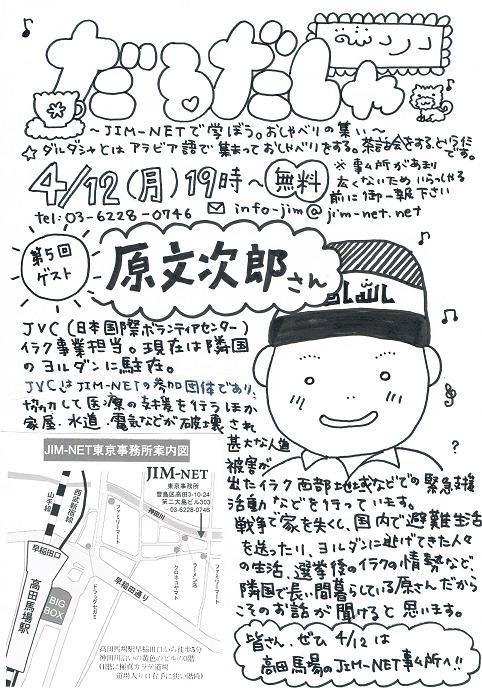 だるだしゃ
～JIM-NETで学ぼう。おしゃべりの集い～
☆ダルダシャとはアラビア語で集まっておしゃべりをする。茶話会をする、という意味です。
4/12(月)19時～ 無料
※事務所があまり
広くないためいらっしゃる
前に御一報下さい
tel:03-6228-0746 ✉ info-jim@jim-net.net
第5回
ゲスト
原文次郎さん
JVC(日本国際ボランティアセンター)
イラク事業担当。現在は隣国
のヨルダンに駐在。
JVCはJIM-NETの参加団体であり、
協力して医療の支援を行うほか
家屋、水道、電気などが破壊され
甚大な人道
被害が
出たイラク西部地域などでの緊急支援
活動などを行っています。
戦争で家を失くし、国内で避難生活
を送ったり、ヨルダンに逃げてきた人々
の生活、選挙後のイラクの情勢など、
隣国で長い間暮らしている原さんだから
こそのお話が聞けると思います。
皆さん、ぜひ 4/12は
高田馬場のJIM-NET事務所へ!!
JIM-NET東京事務所案内図
JIM-NET
東京事務所
豊島区高田3-10-24
第二大島ビル303
03-6228-0746
西武新宿線
山手線
ファミリーマート
神田川
早稲田口
高田馬場駅
BIG
BOX
ドラッグセガミ
早稲田通り
クロネコヤマト
ラーメン店
ファミリーマート
高田馬場駅早稲田口から徒歩5分
神田川沿いの黄色のビルの3階
(1階に極真カラテ道場
道場入り口右手に狭い階段)